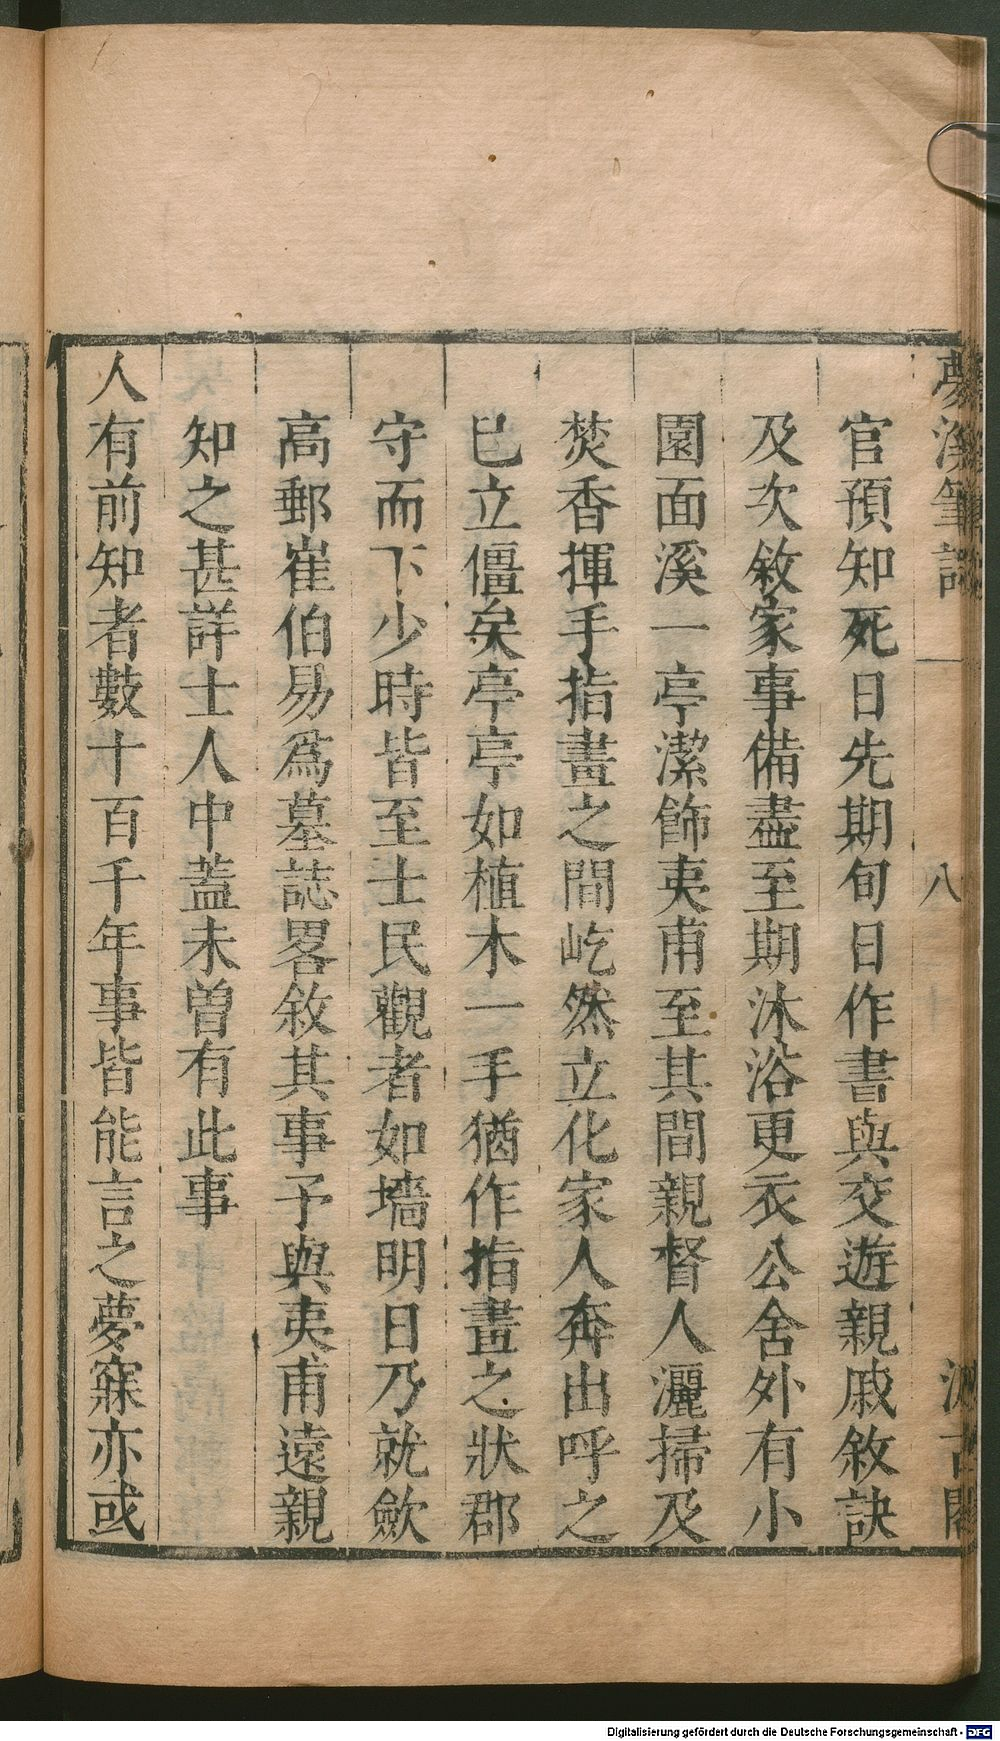 官預知死日先期旬日作書與交遊親戚敘訣
及次敘家事備盡至期沐浴更衣公舍外有小
園面溪一亭潔飾夷甫至其間親督人灑掃及
焚香揮手指畫之間屹然立化家人奔出呼之
已立僵矣亭亭如植木一手猶作指畫之狀郡
守而下少時皆至士民觀者如墻明日乃就歛
高郵崔伯易爲墓誌畧敘其事予與夷甫遠親
知之甚詳士人中蓋未曽有此事
人有前知者數十百千年事皆能言之夢寐亦或
夢溪筆談
八
汲古閣
Digitalisierung gefördert durch die Deutsche Forschungsgemeinschaft - DFG